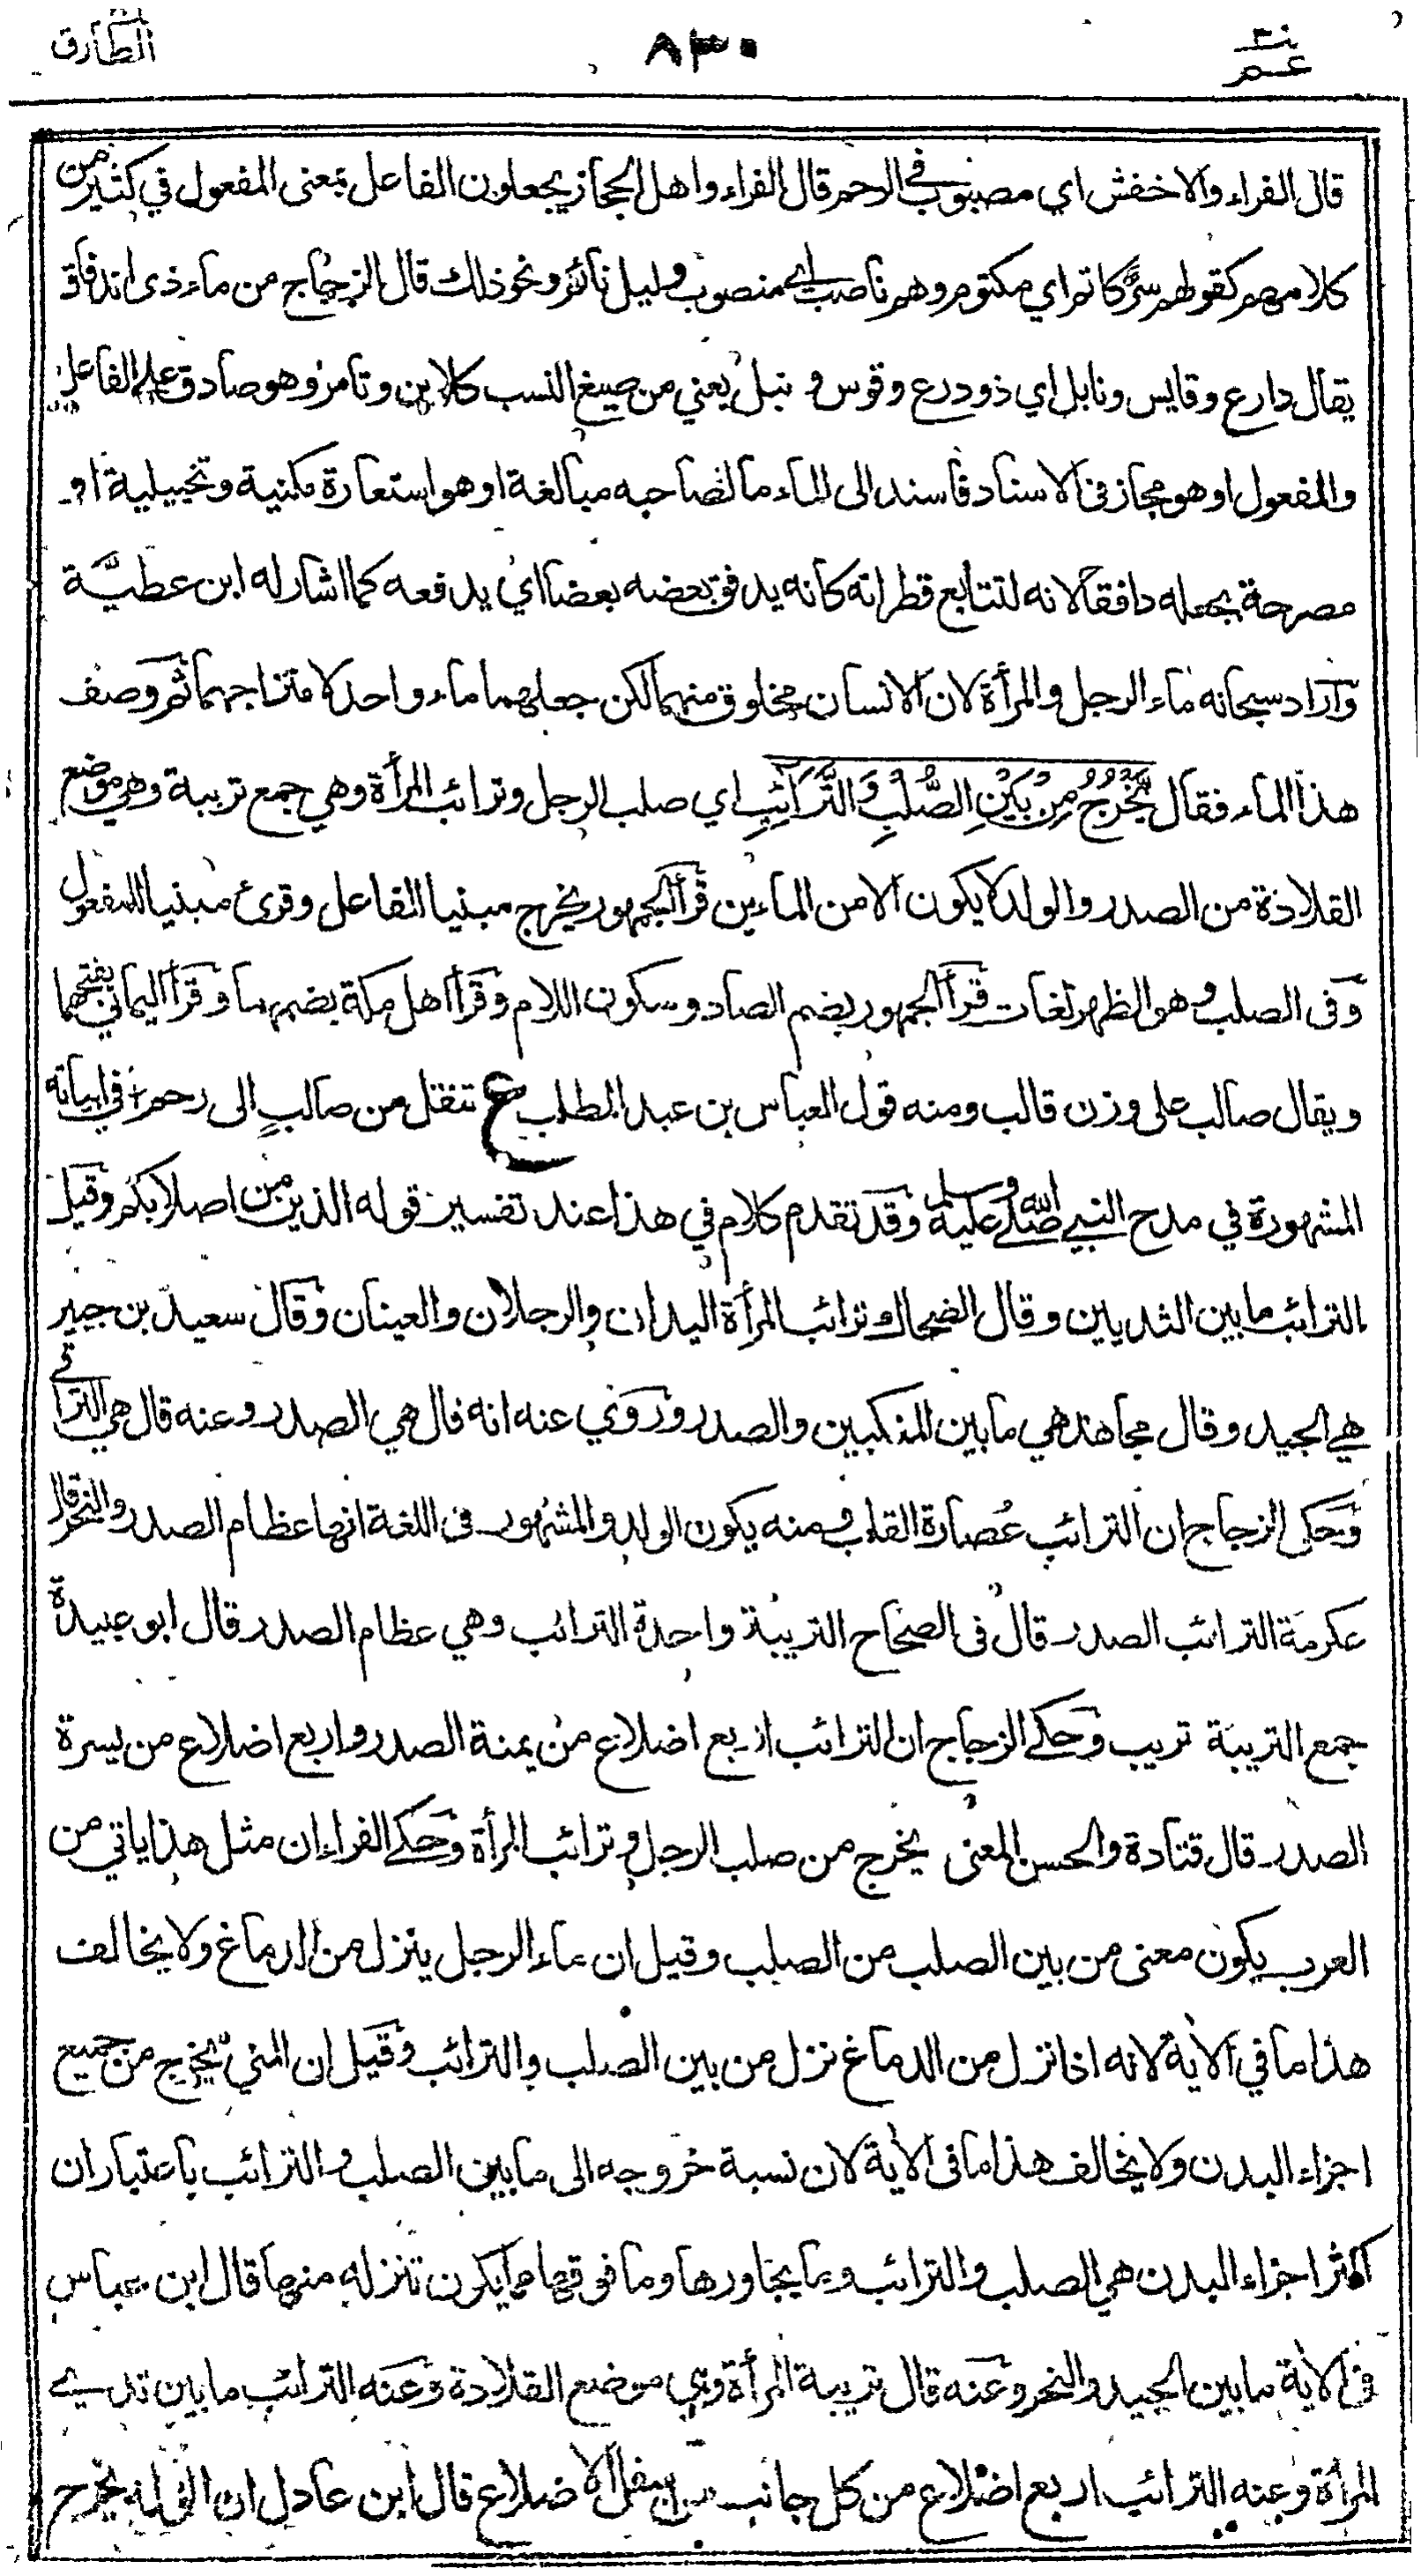 عم ٣٠ ٨٣٠ الطارق
قال الفراء والاخفش اي مصبوب في الرحم قال الفراء واهل الحجاز يجعلون الفاعل بمعنى المفعول في كثير من
كلامهم كقولهم سرٌّ كاتم اي مكتوم وهم ناصب اي منصوب وليل نائم ونحو ذلك قال الزجاج من ماء ذي اندفاق
يقال دارع وقايس ونابل اي ذو درع وقوس و نبل يعني من صيغ النسب كلابن وتامر وهو صادق على الفاعل
والمفعول او هو مجاز في الاسناد فاسند الى الماء ما لصاحبه مبالغة او هو استعارة مكنية وتخييلية او
مصرحة بجعله دافقا لانه لتتابع قطراته كانه يدفق بعضه بعضا اي يدفعه كما اشار له ابن عطيَّة
واراد سبحانه ماء الرجل والمرأة لان الانسان مخلوق منهما لكن جعلهما ماء واحد لامتزاجهما ثم وصف
هذا الماء فقال يَخْرُجُ مِنْ بَيْنِ الصُّلْبِ وَالتَّرَائِبِ اي صلب الرجل وترائب المرأة وهي جمع تريبة وهي موضع
القلادة من الصدر والولد لا يكون الا من الماءين قرأ الجمهور يخرج مبنيا للفاعل وقرئ مبنيا للمفعول
وفي الصلب وهو الظهر لغات قرأ الجمهور بضم الصاد وسكون اللام وقرأ اهل مكة بضمهما وقرأ اليماني بفتحهما
ويقال صالب على وزن قالب ومنه قول العباس بن عبد المطلب ع تنقل من صالبٍ الى رحم ÷ في ابياته
المشهورة في مدح النبي صلى الله عليه وسلم وقد تقدم كلام في هذا عند تفسير قوله الذين من اصلابكم وقيل
الترائب ما بين الثديين وقال الضحاك ترائب المرأة اليدان والرجلان والعينان وقال سعيد بن جبير
هي الجيد وقال مجاهد هي ما بين المنكبين والصدر وروي عنه انه قال هي الصدر وعنه قال هي التراقي
وحكى الزجاج ان الترائب عُصارة القلب ومنه يكون الولد والمشهور في اللغة انها عظام الصدر والنحر قال
عكرمة الترائب الصدر قال في الصحاح التريبة واحدة الترائب وهي عظام الصدر قال ابو عبيدة
جمع التريبة تريب وحكى الزجاج ان الترائب اربع اضلاع من يمنة الصدر واربع اضلاع من يسرة
الصدر قال قتادة والحسن المعنى يخرج من صلب الرجل وترائب المرأة وحكى الفراء ان مثل هذا ياتي من
العرب يكون معنى من بين الصلب من الصلب وقيل ان ماء الرجل ينزل من الدماغ ولا يخالف
هذا ما في الاية لانه اذا نزل من الدماغ نزل من بين الصلب والترائب وقيل ان المني يخرج من جميع
اجزاء البدن ولا يخالف هذا ما في الاية لان نسبة خروجه الى ما بين الصلب والترائب باعتبار ان
اكثر اجزاء البدن هي الصلب والترائب وما يجاورها وما فوقها مما يكون تنزله منها قال ابن عباس
في الاية ما بين الجيد والنحر وعنه قال تريبة المرأة وهي موضع القلادة وعنه الترائب ما بين ثديي
المرأة وعنه الترائب اربع اضلاع من كل جانب من اسفل الاضلاع قال ابن عادل ان الولد يخرج